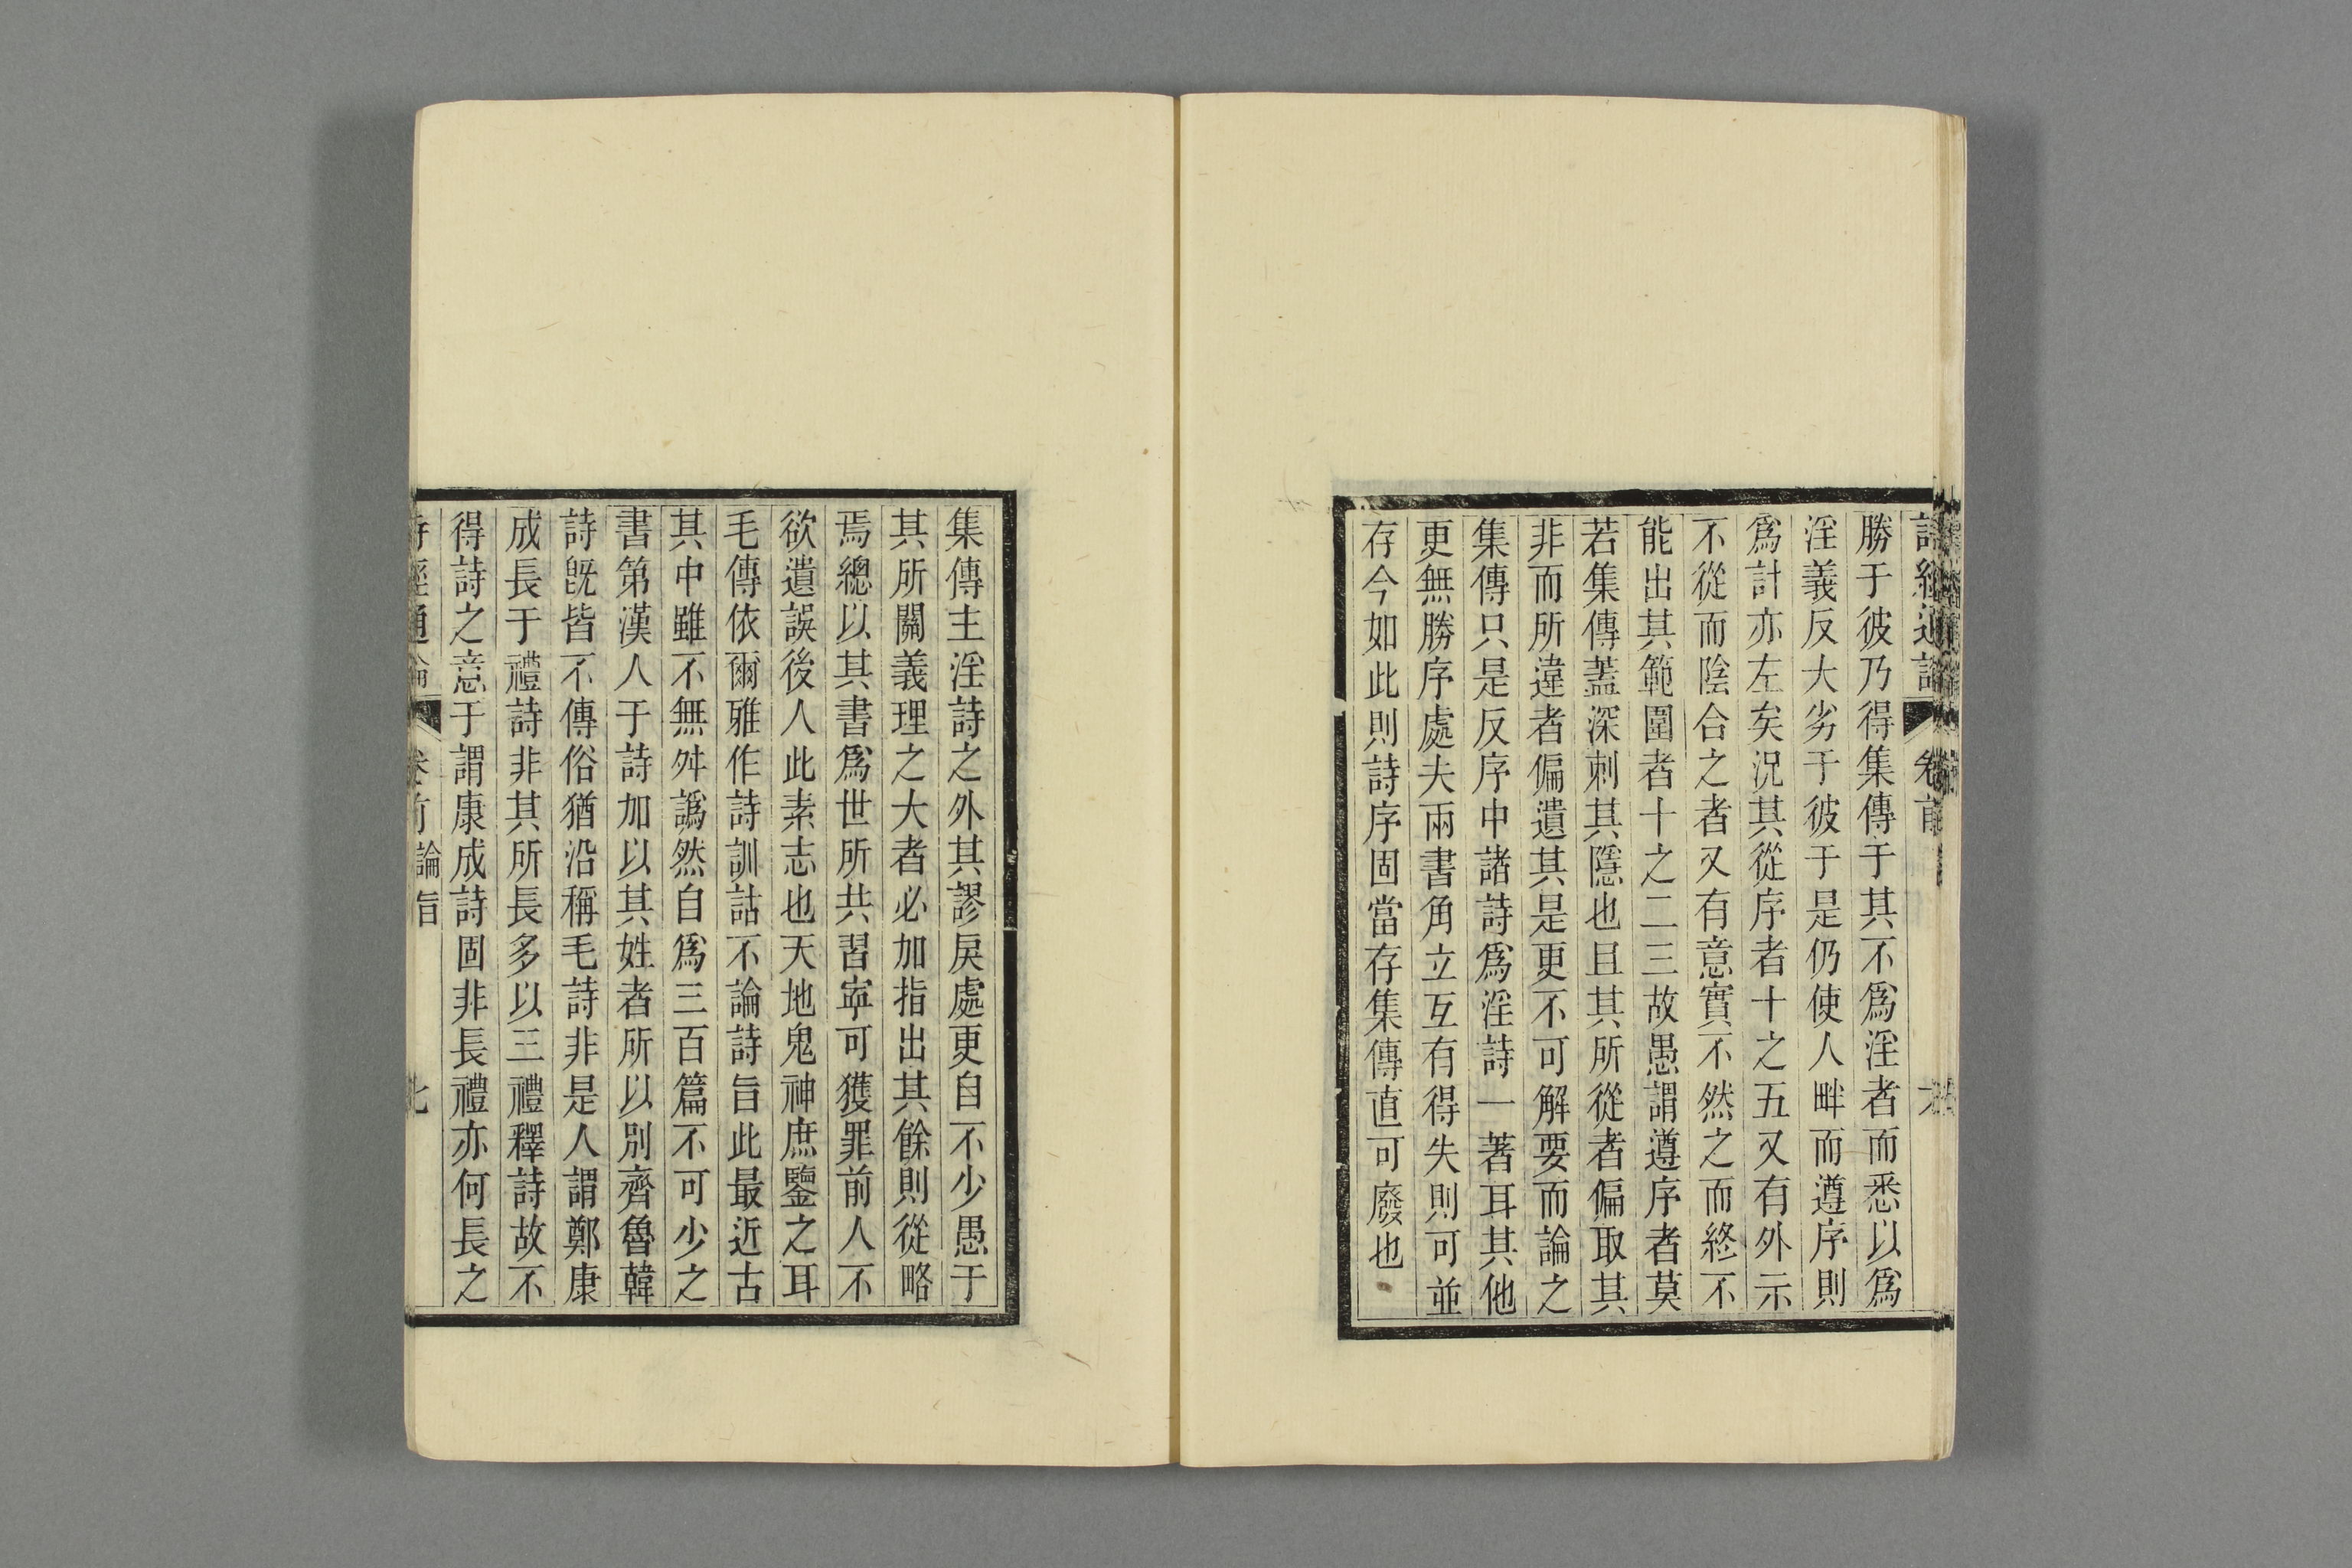 詩經通論 卷前 六
勝于彼乃得集傳于其不爲淫者而悉以爲
淫義反大劣于彼于是仍使人畔而遵序則
爲計亦左矣況其從序者十之五又有外示
不從而陰合之者又有意實不然之而終不
能出其範圍者十之二三故愚謂遵序者莫
若集傳蓋深刺其隱也且其所從者偏取其
非而所違者偏遺其是更不可解要而論之
集傳只是反序中諸詩爲淫詩一著耳其他
更無勝序處夫兩書角立互有得失則可並
存今如此則詩序固當存集傳直可廢也
集傳主淫詩之外其謬戾處更自不少愚于
其所關義理之大者必加指出其餘則從略
焉總以其書爲世所共習寧可獲罪前人不
欲遺誤後人此素志也天地鬼神庶鑒之耳
毛傳依爾雅作詩訓詁不論詩旨此最近古
其中雖不無舛譌然自爲三百篇不可少之
書第漢人于詩加以其姓者所以別齊魯韓
詩旣皆不傳俗猶沿稱毛詩非是人謂鄭康
成長于禮詩非其所長多以三禮釋詩故不
得詩之意于謂康成詩固非長禮亦何長之
詩經通論 卷前 論旨 七